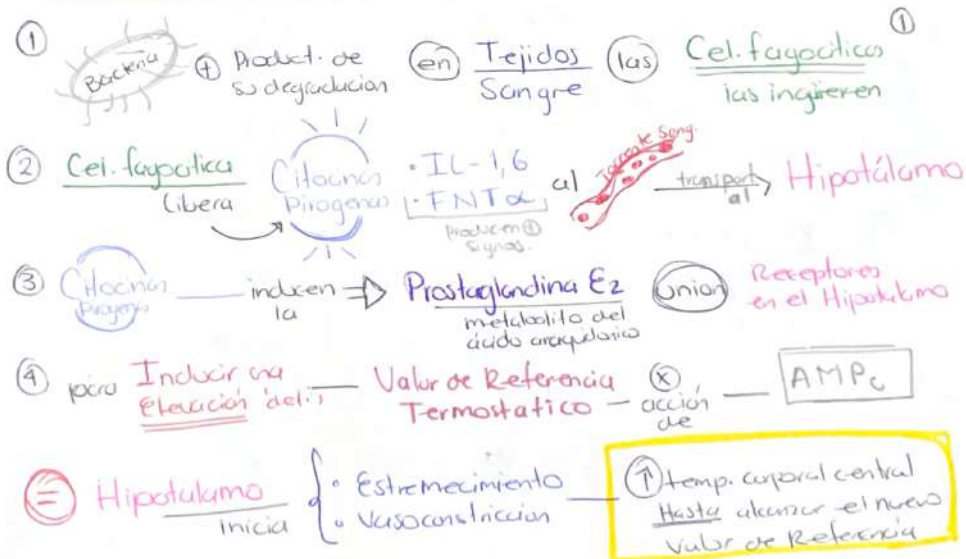 ① Bacteria ⊕ Product. de su degradacion en Tejidos Sangre las Cel. fagociticas las ingieren ①
② Cel. fagocitica libera Citocinas Pirogenas · IL-1,6 · FNT α producen ⊕ signos. al Torrente Sang. transport al Hipotálamo
③ Citocinas Pirogenas inducen la Prostaglandina E2 metabolito del ácido araquidonico Union Receptores en el Hipotálamo
④ para Inducir una Elevación del Valor de Referencia Termostatico ⓧ acción de AMPc
= Hipotalamo inicia { · Estremecimiento · Vasoconstriccion ↑ temp. corporal central Hasta alcanzar el nuevo Valor de Referencia